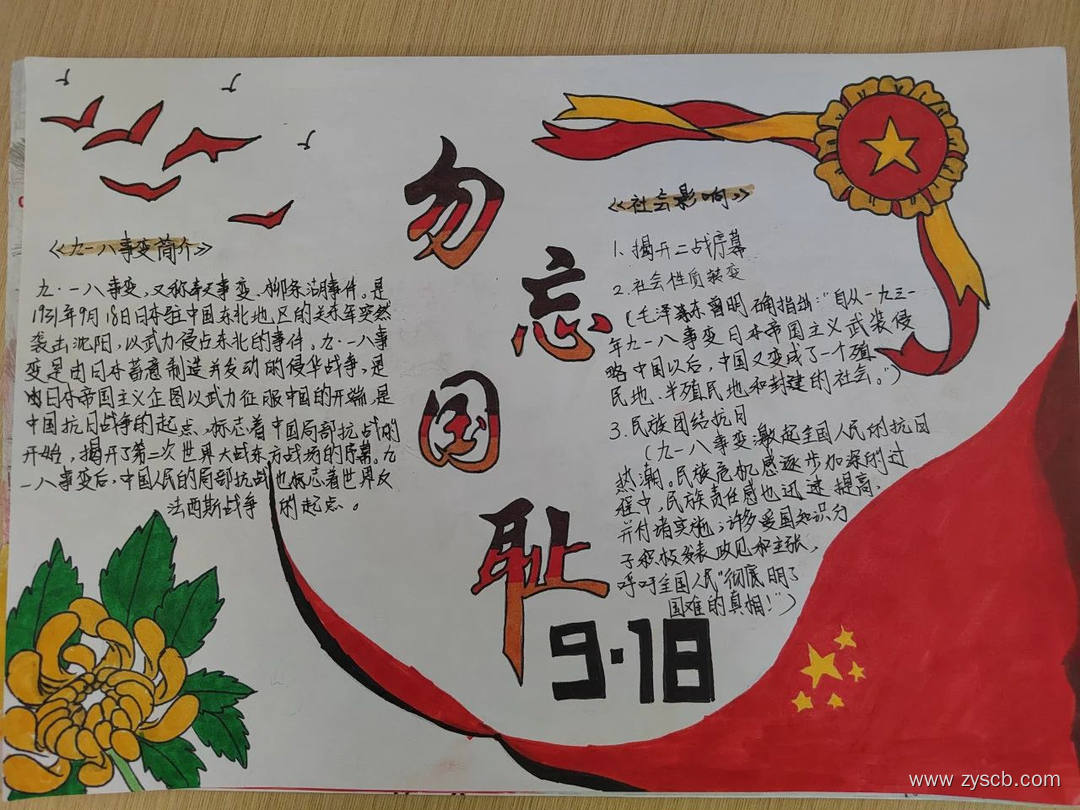 勿
忘
国
耻
9·18
《九一八事变简介》
九·一八事变,又称奉天事变、柳条湖事件。是
1931年9月18日日本驻中国东北地区的关东军突然
袭击沈阳,以武力侵占东北的事件。九·一八事
变是由日本蓄意制造并发动的侵华战争,是
日本帝国主义企图以武力征服中国的开端,是
中国抗日战争的起点,标志着中国局部抗战的
开始,揭开了第二次世界大战东方战场的序幕。九
一八事变后,中国人民的局部抗战也标志着世界反
法西斯战争的起点。
《社会影响》
1、揭开二战序幕
2.社会性质转变
(毛泽东曾明确指出:"自从一九三一
年九一八事变日本帝国主义武装侵
略中国以后,中国又变成了一个殖
民地、半殖民地和封建的社会。")
3.民族团结抗日
(九一八事变激起全国人民的抗日
热潮。民族危机感逐步加深的过
程中,民族责任感也迅速提高,
并付诸实施;许多爱国知识分
子积极发表政见和主张,
呼吁全国人民"彻底明了
国难的真相!")
www.zyscb.com